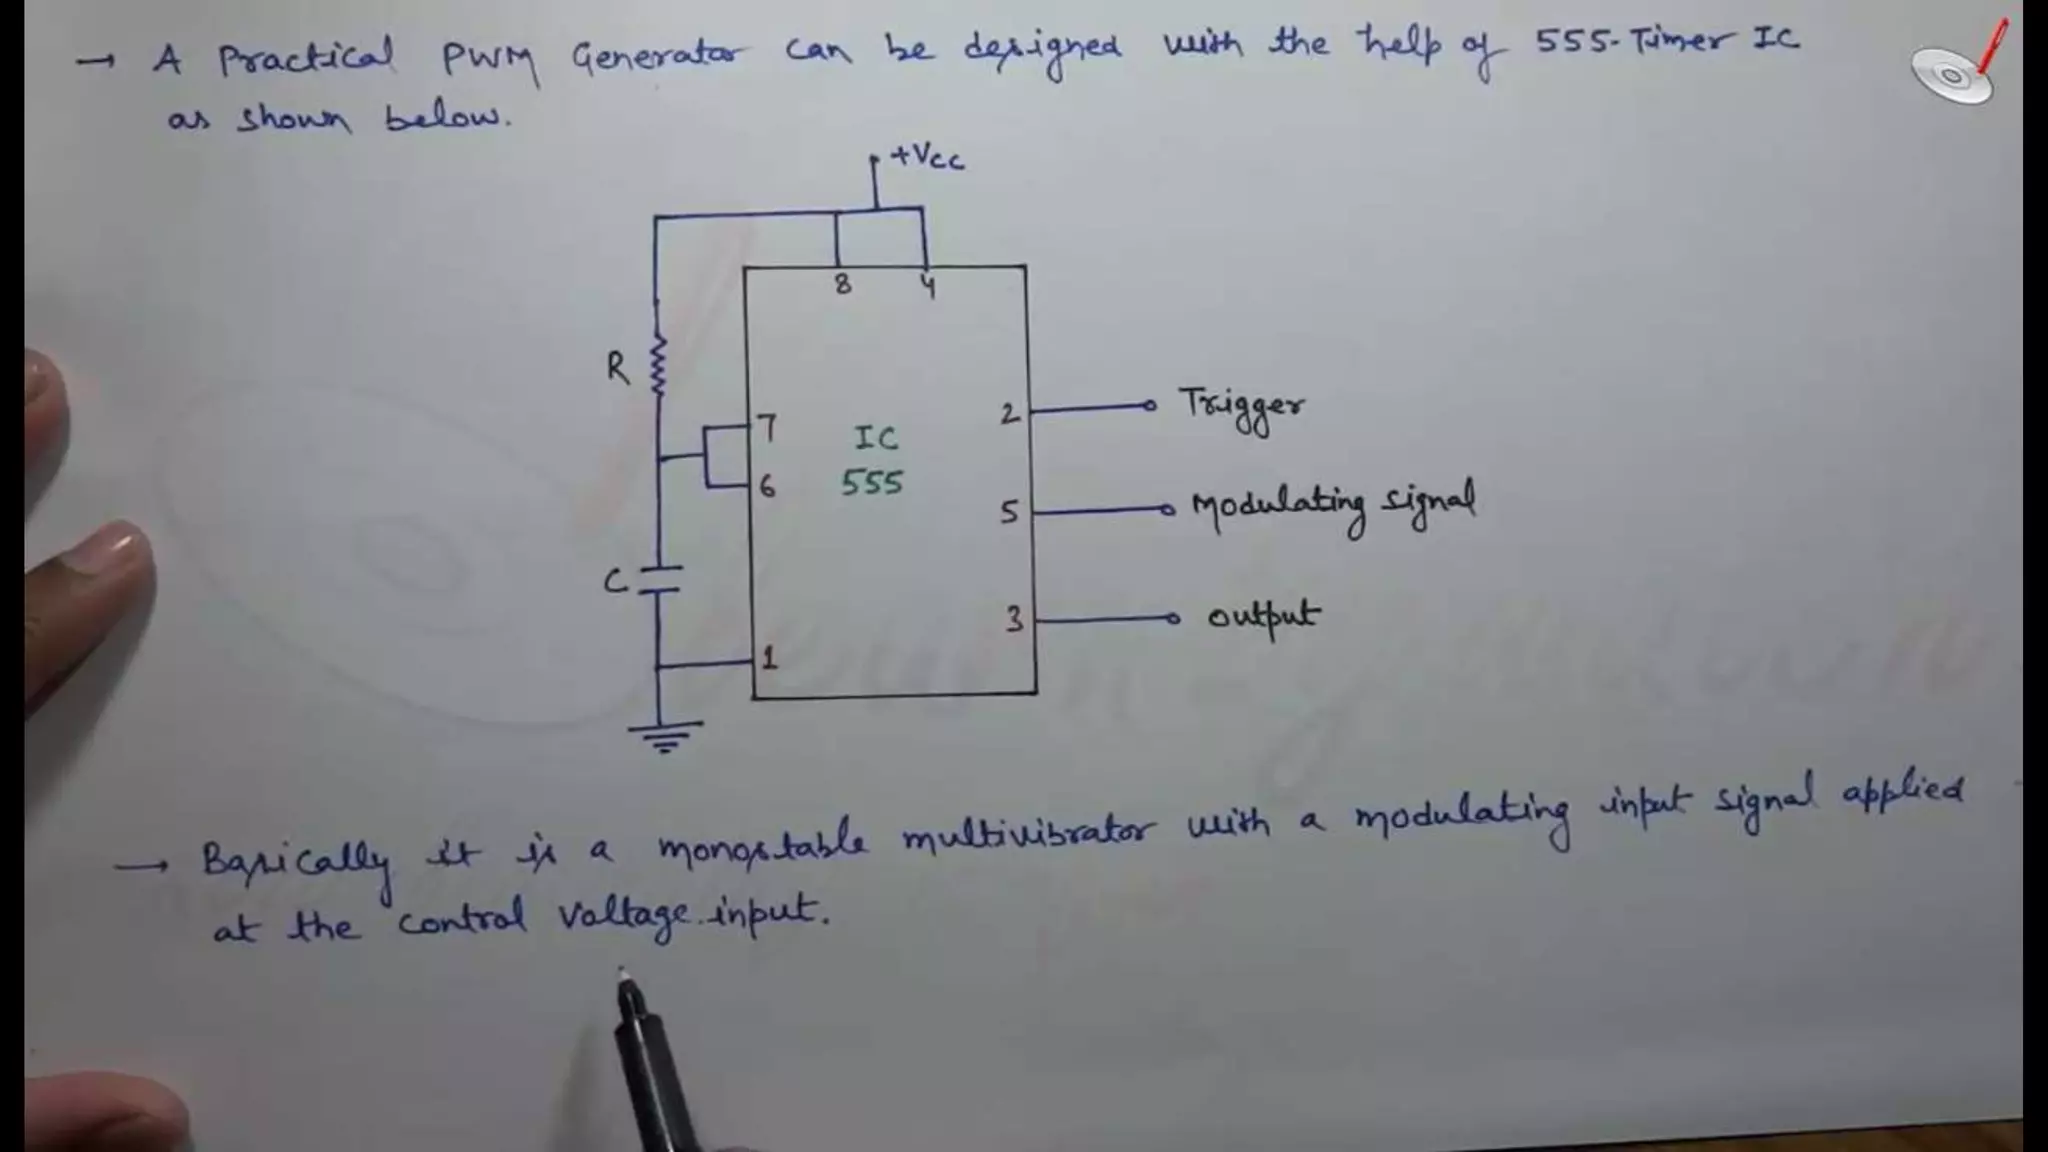 → A Practical PWM Generator can be designed with the help of 555-Timer IC
as shown below.
+Vcc
8 4
R
7
IC
555
6
2 Trigger
5 Modulating signal
C
3 output
1
→ Basically it is a monostable multivibrator with a modulating input signal applied
at the control voltage input.